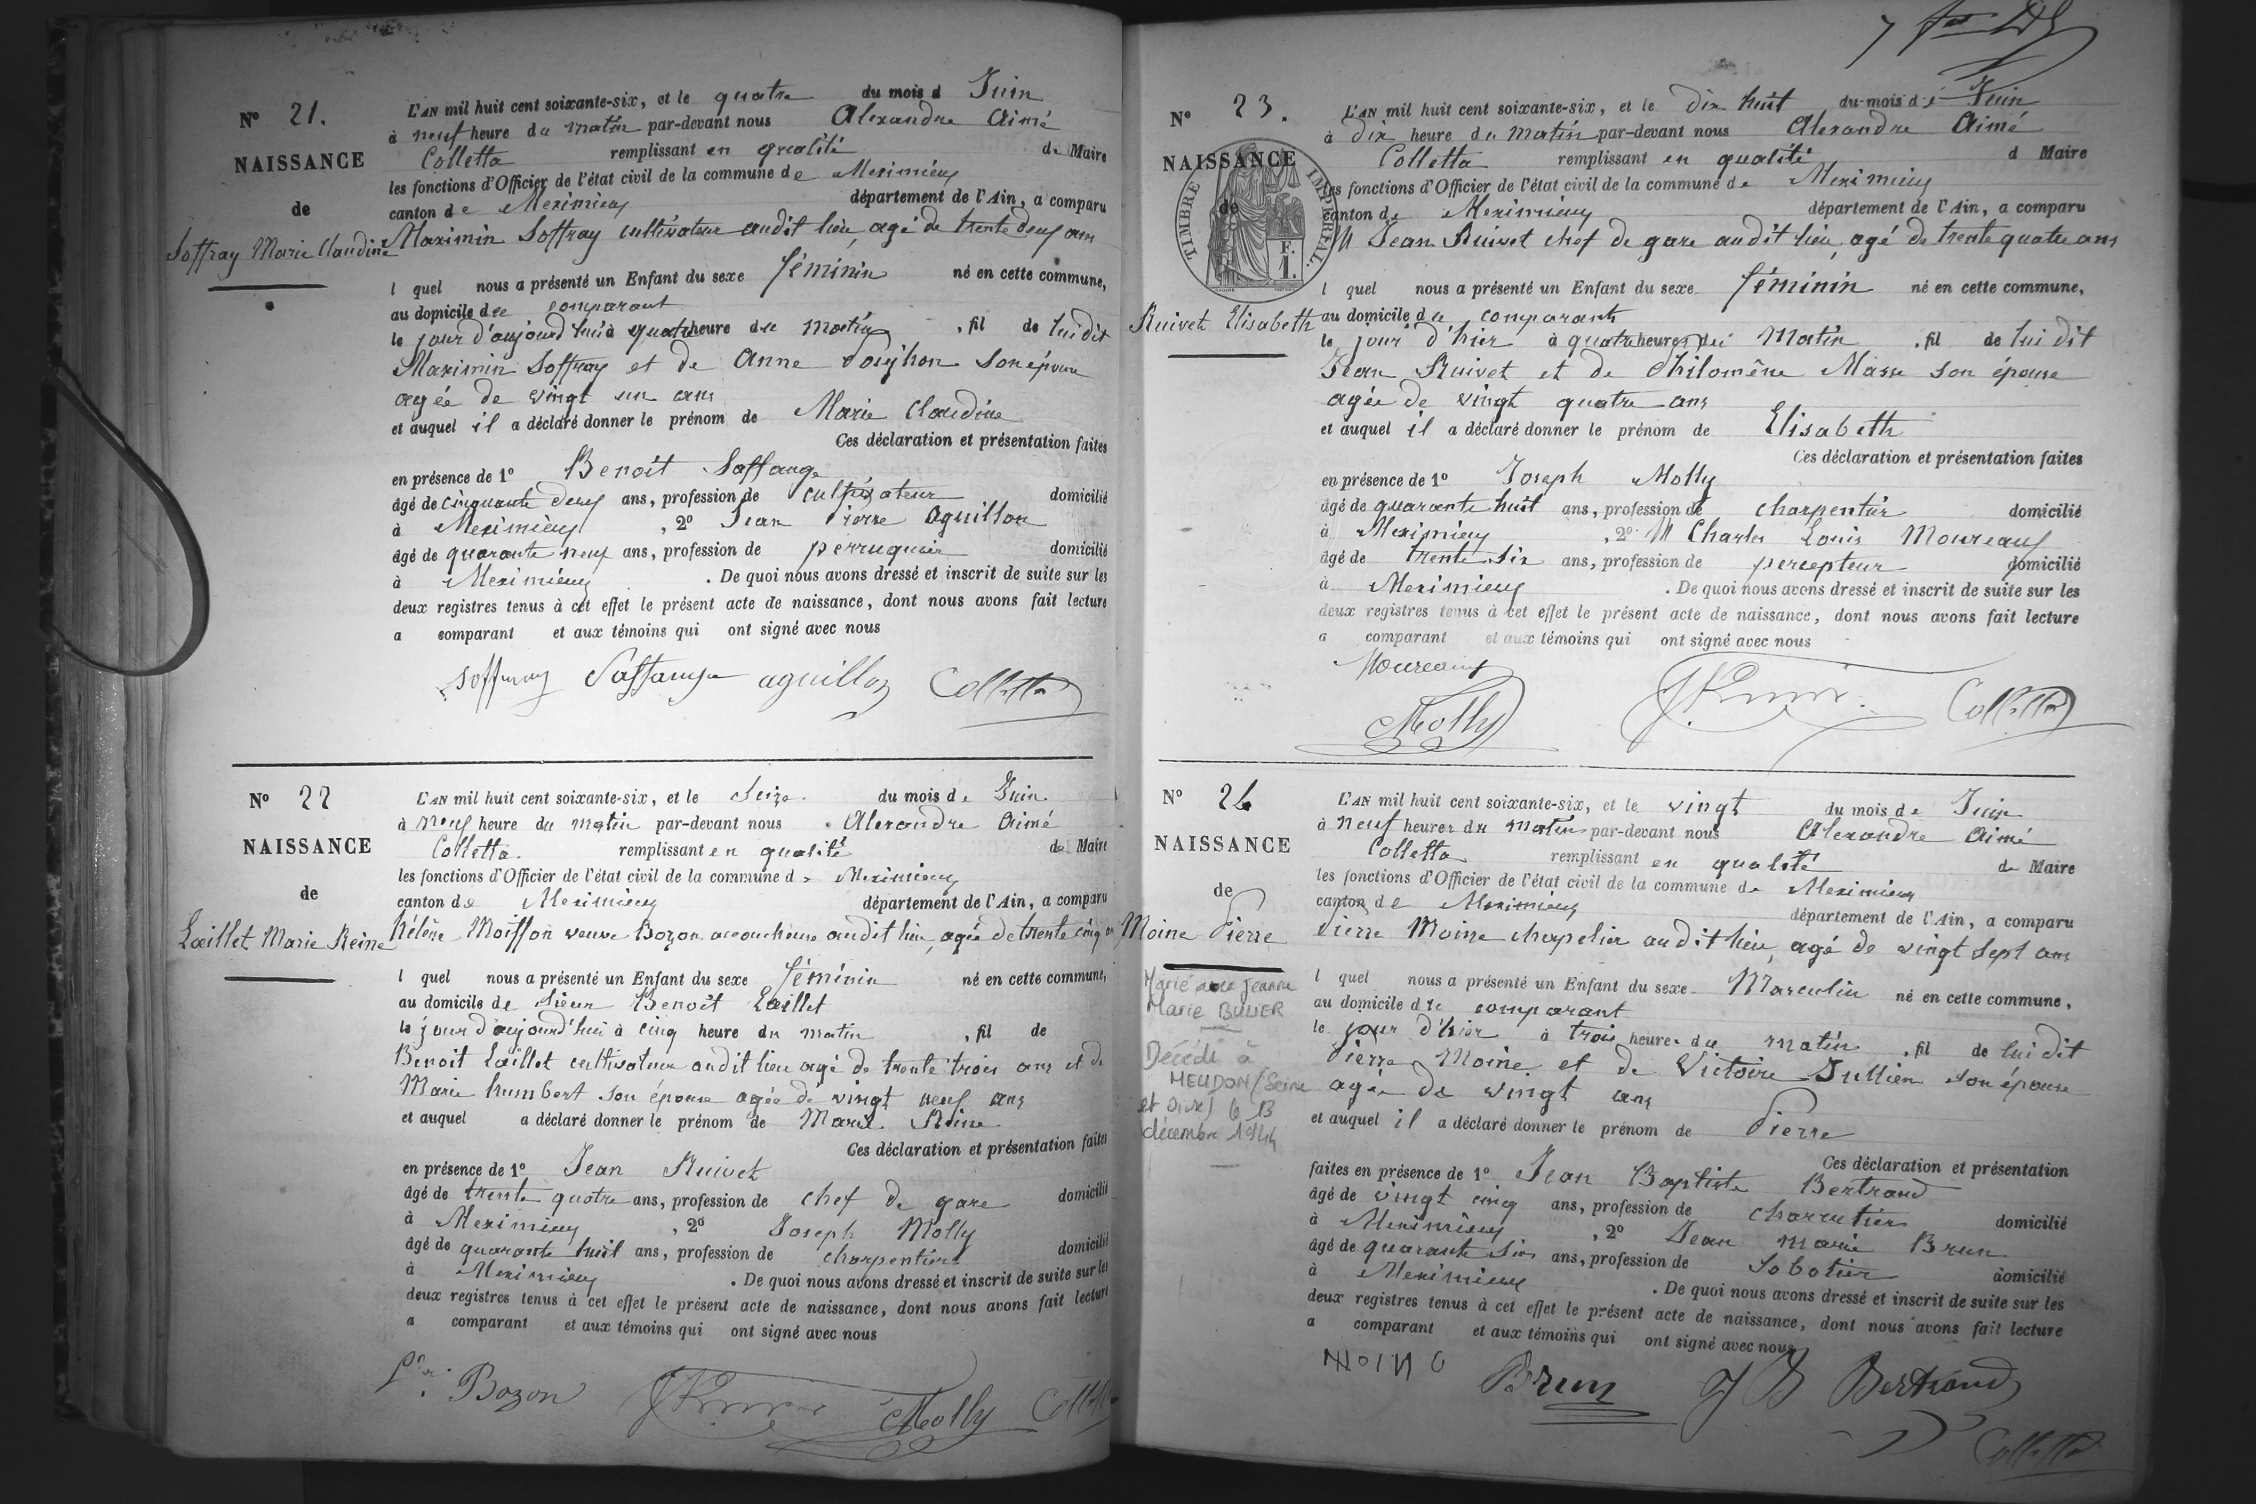 N° 21.
NAISSANCE
de
Soffray Marie Claudine
L'AN mil huit cent soixante-six, et le quatre du mois d Juin
à neuf heure du matin par-devant nous Alexandre Aimé
Colletta remplissant en qualité de Maire
les fonctions d'Officier de l'état civil de la commune de Meximieux
canton de Meximieux département de l'Ain, a comparu
Maximin Soffray cultivateur audit lieu, agé de trente deux ans
l quel nous a présenté un Enfant du sexe féminin né en cette commune,
au domicile du comparant
le jour d'aujourd'hui à quatre heure du matin , fil de lui dit
Maximin Soffray et de Anne son épouse
agée de vingt un ans
et auquel il a déclaré donner le prénom de Marie Claudine
Ces déclaration et présentation faites
en présence de 1° Benoit Saffange
âgé de cinquante deux ans, profession de cultivateur domicilié
à Meximieux , 2° Jean Pierre Aguillon
âgé de quarante neuf ans, profession de perruquier domicilié
à Meximieux . De quoi nous avons dressé et inscrit de suite sur les
deux registres tenus à cet effet le présent acte de naissance, dont nous avons fait lecture
a comparant et aux témoins qui ont signé avec nous
Soffray Saffange aguillon Colletta
N° 22
NAISSANCE
de
Laillet Marie Reine
L'AN mil huit cent soixante-six, et le Seize du mois de Juin
à neuf heure du matin par-devant nous Alexandre Aimé
Colletta remplissant en qualité de Maire
les fonctions d'Officier de l'état civil de la commune de Meximieux
canton de Meximieux département de l'Ain, a comparu
hélène Moiffon veuve Bozon accoucheuse audit lieu, agée de trente cinq
l quel nous a présenté un Enfant du sexe féminin né en cette commune,
au domicile de sieur Benoit Laillet
le jour d'aujourd'hui à cinq heure du matin , fil de
Benoit Laillet cultivateur audit lieu agé de trente trois ans et de
Marie humbert son épouse agée de vingt neuf ans
et auquel a déclaré donner le prénom de Marie Reine
Ces déclaration et présentation faites
en présence de 1° Jean Ruivet
âgé de trente quatre ans, profession de chef de gare domicilié
à Meximieux , 2° Joseph Molly
âgé de quarante huit ans, profession de charpentier domicilié
à Meximieux . De quoi nous avons dressé et inscrit de suite sur les
deux registres tenus à cet effet le présent acte de naissance, dont nous avons fait lecture
a comparant et aux témoins qui ont signé avec nous
Bozon Molly
7
N° 23.
NAISSANCE
de
TIMBRE IMPERIAL
F.
1.
Ruivet Elisabeth
L'AN mil huit cent soixante-six, et le dix huit du mois de Juin
à dix heure du matin par-devant nous Alexandre Aimé
Colletta remplissant en qualité d Maire
les fonctions d'Officier de l'état civil de la commune de Meximieux
canton de Meximieux département de l'Ain, a comparu
M Jean Ruivet chef de gare audit lieu, agé de trente quatre ans
l quel nous a présenté un Enfant du sexe féminin né en cette commune,
au domicile du comparant
le jour d'hier à quatre heures du Matin , fil de lui dit
Jean Ruivet et de Philomène Masse son épouse
agée de vingt quatre ans
et auquel il a déclaré donner le prénom de Elisabeth
Ces déclaration et présentation faites
en présence de 1° Joseph Molly
âgé de quarante huit ans, profession de charpentier domicilié
à Meximieux , 2° M Charles Louis Moureaux
âgé de trente six ans, profession de percepteur domicilié
à Meximieux . De quoi nous avons dressé et inscrit de suite sur les
deux registres tenus à cet effet le présent acte de naissance, dont nous avons fait lecture
a comparant et aux témoins qui ont signé avec nous
Moureaux
Molly Colletta
N° 24
NAISSANCE
de
Moine Pierre
Marié avec Jeanne
Marie BULIER
Décédé à
MEUDON (Seine
et Oise) le 13
décembre 1944
L'AN mil huit cent soixante-six, et le vingt du mois de Juin
à neuf heures du matin par-devant nous Alexandre Aimé
Colletta remplissant en qualité de Maire
les fonctions d'Officier de l'état civil de la commune de Meximieux
canton de Meximieux département de l'Ain, a comparu
Pierre Moine chapelier audit lieu, agé de vingt sept ans
l quel nous a présenté un Enfant du sexe Masculin né en cette commune,
au domicile du comparant
le jour d'hier à trois heures du matin , fil de lui dit
Pierre Moine et de Victoire Jullien son épouse
agée de vingt ans
et auquel il a déclaré donner le prénom de Pierre
Ces déclaration et présentation
faites en présence de 1° Jean Baptiste Bertrand
âgé de vingt cinq ans, profession de charcutier domicilié
à Meximieux , 2° Jean Marie Brun
âgé de quarante six ans, profession de Sabotier domicilié
à Meximieux . De quoi nous avons dressé et inscrit de suite sur les
deux registres tenus à cet effet le présent acte de naissance, dont nous avons fait lecture
a comparant et aux témoins qui ont signé avec nous
Brun J B Bertrand
Colletta